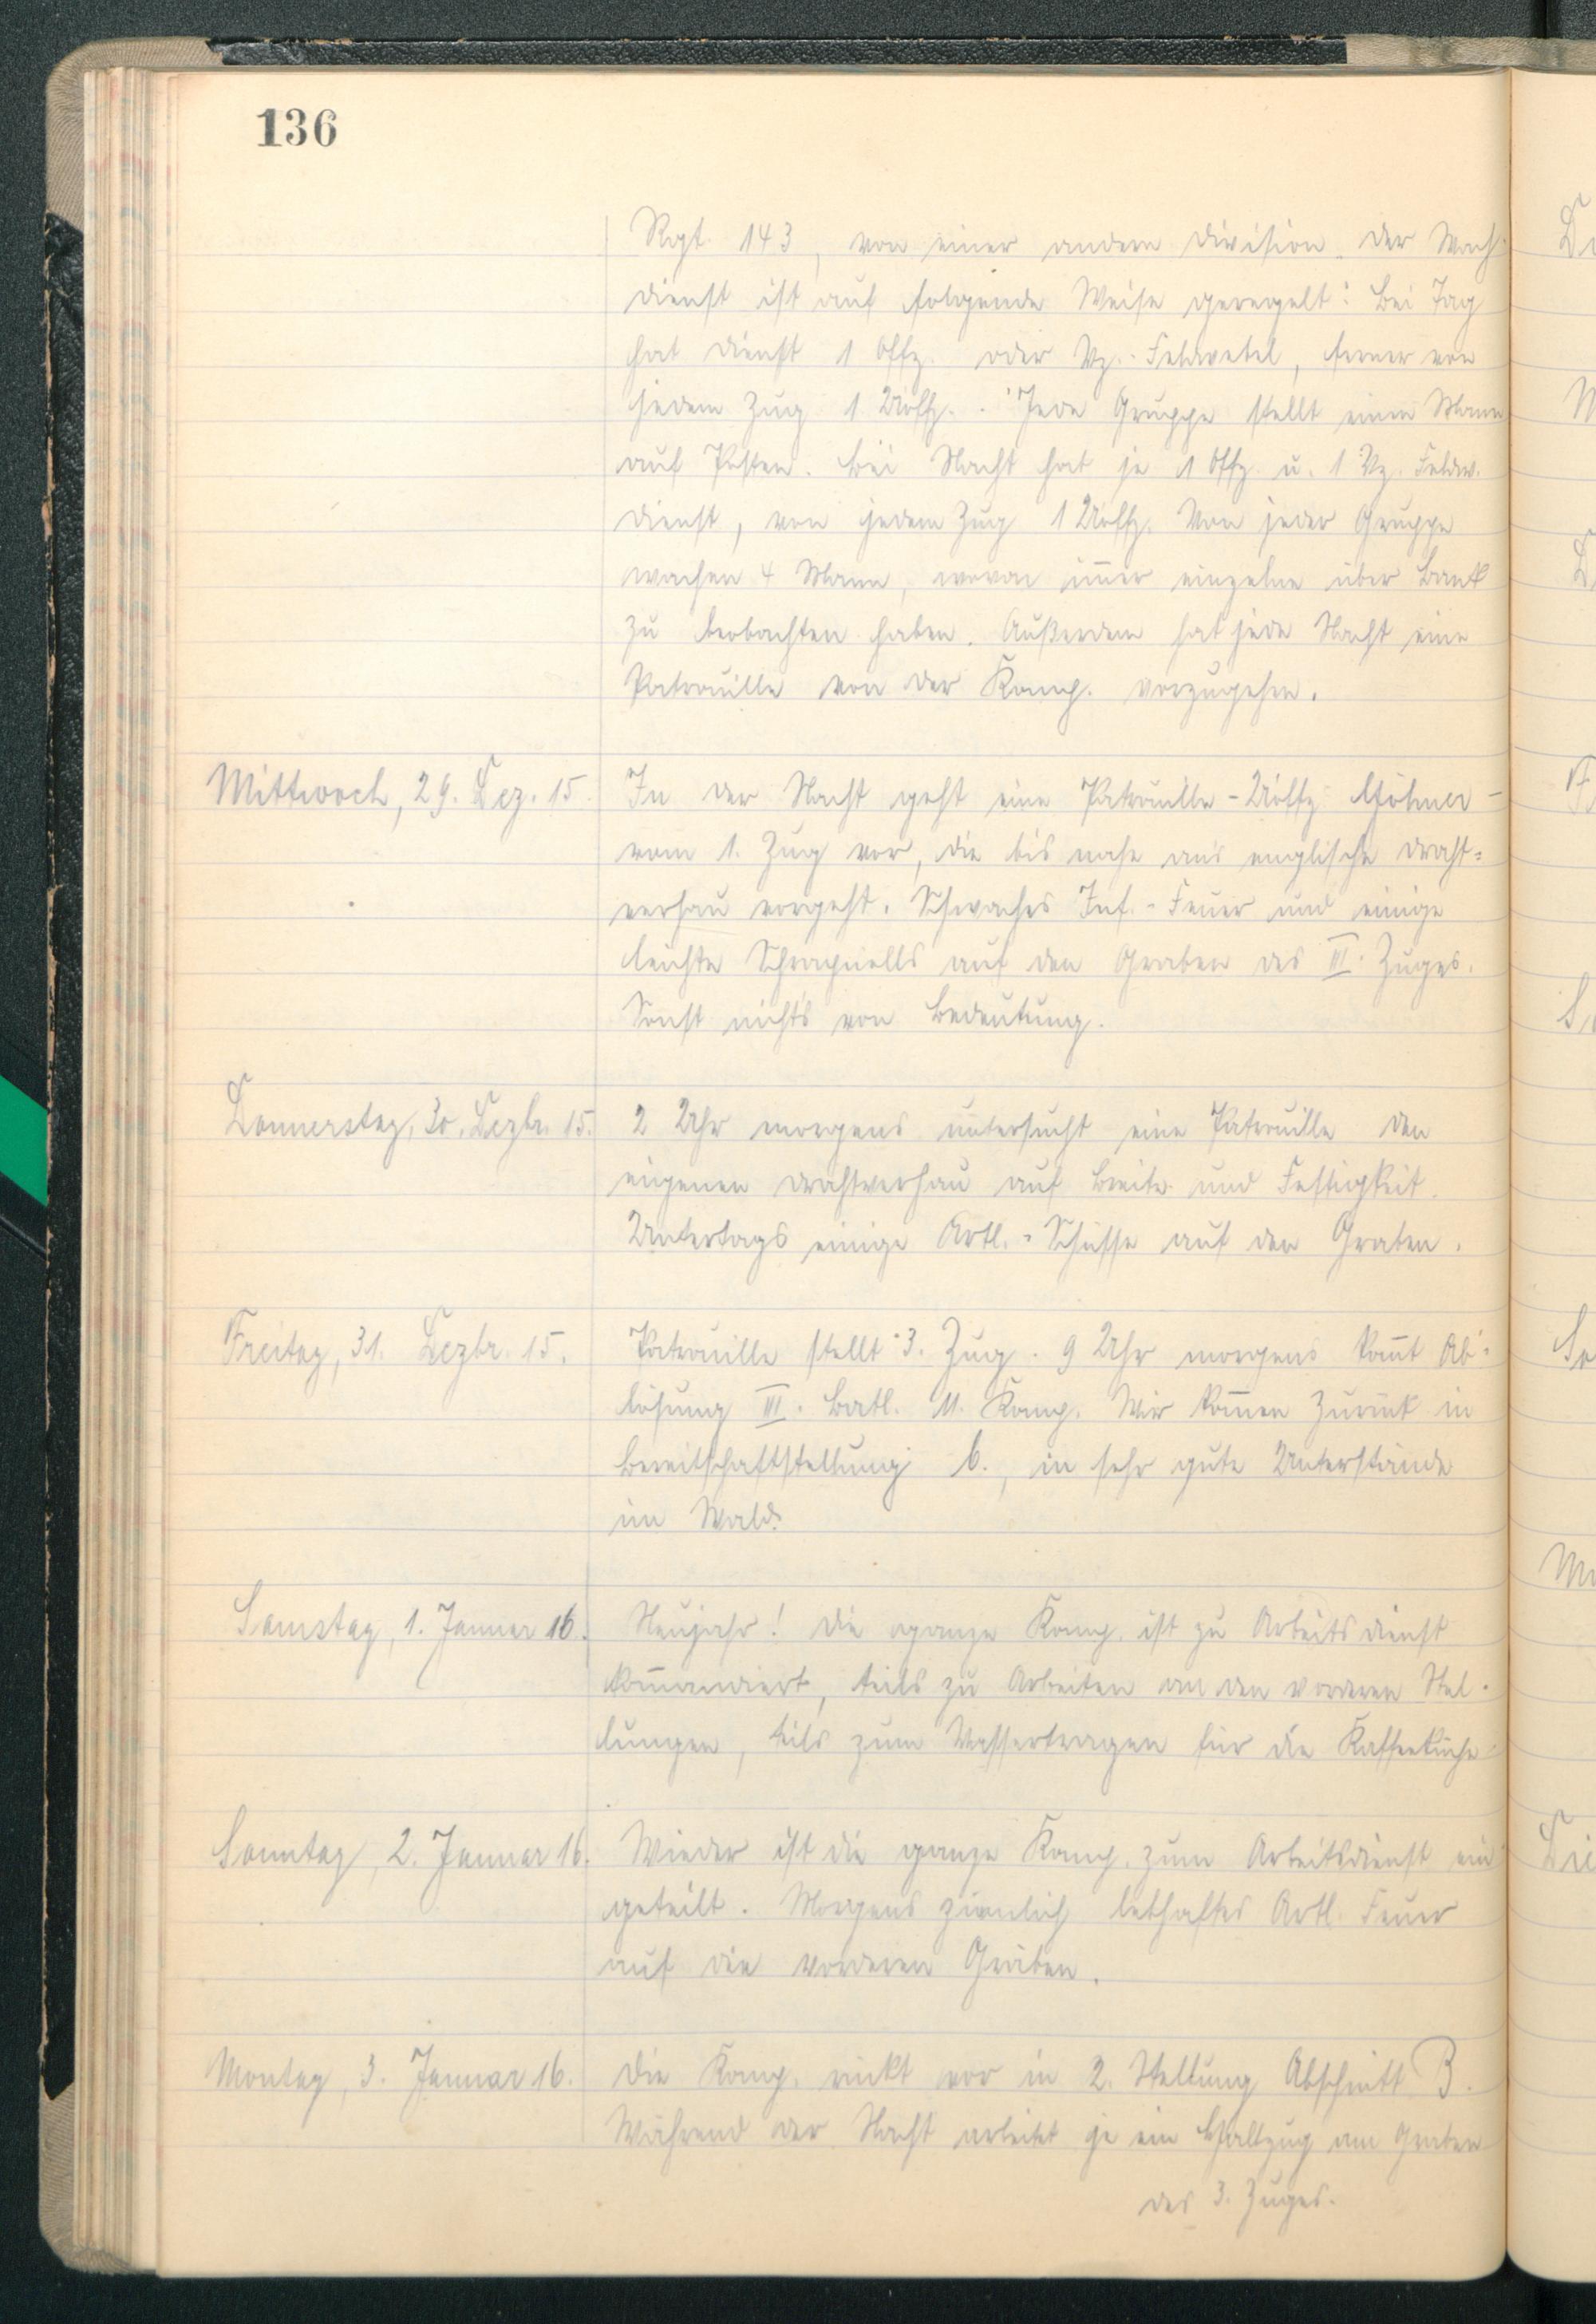 136
Rgt. 143, von einer andern Division. Der Wach-
dienst ist auf folgende Weise geregelt: Bei Tag
hat Dienst 1 Offz. oder Vz.-Feldwebel, ferner von
jedem Zug 1 Uoffz. . Jede Gruppe stellt einen Mann
auf Posten. Bei Nacht hat je 1 Offz. u. 1 Vz. Feldw.
Dienst, von jedem Zug 1 Uoffz. Von jeder Gruppe
wachen 4 Mann, wovon im̅er einzelne über Bank
zu beobachten haben. Außerdem hat jede Nacht eine
Patrouille von der Komp. vorzugehen.
Mittwoch, 29. Dez. 15. In der Nacht geht eine Patrouille - Uoffz. -
vom 1. Zug vor, die bis nahe ans englische Draht-
verhau vorgeht. Schwaches Inf.-Feuer und einige
leichte Schrapnells auf den Graben des III. Zuges.
Sonst nichts von Bedeutung.
Donnerstag, 30. Dezbr. 15. 2 Uhr morgens untersucht eine Patrouille den
eigenen Drahtverhau auf Breite und Festigkeit.
Untertags einige Artl.-Schüsse auf den Graben.
Freitag, 31. Dezbr. 15. Patrouille stellt 3. Zug. 9 Uhr morgens kom̅t Ab-
lösung III. Batl. 11. Komp. Wir kom̅en zurück in
Bereitschaftstellung b., in sehr gute Unterstände
im Wald.
Samstag, 1. Januar 16. Neujahr! Die ganze Komp. ist zu Arbeitsdienst
kom̅andiert, teils zu Arbeiten an den vorderen Stel-
lungen, teils zum Wassertragen für die Kaffeeküche.
Sonntag, 2. Januar 16. Wieder ist die ganze Komp. zum Arbeitsdienst ein-
geteilt. Morgens ziemlich lebhaftes Artl. Feuer
auf die vorderen Gräben.
Montag, 3. Januar 16. Die Komp. rückt vor in 2. Stellung Abschnitt B.
Während der Nacht arbeitet je ein Halbzug am Graben
des 3. Zuges.